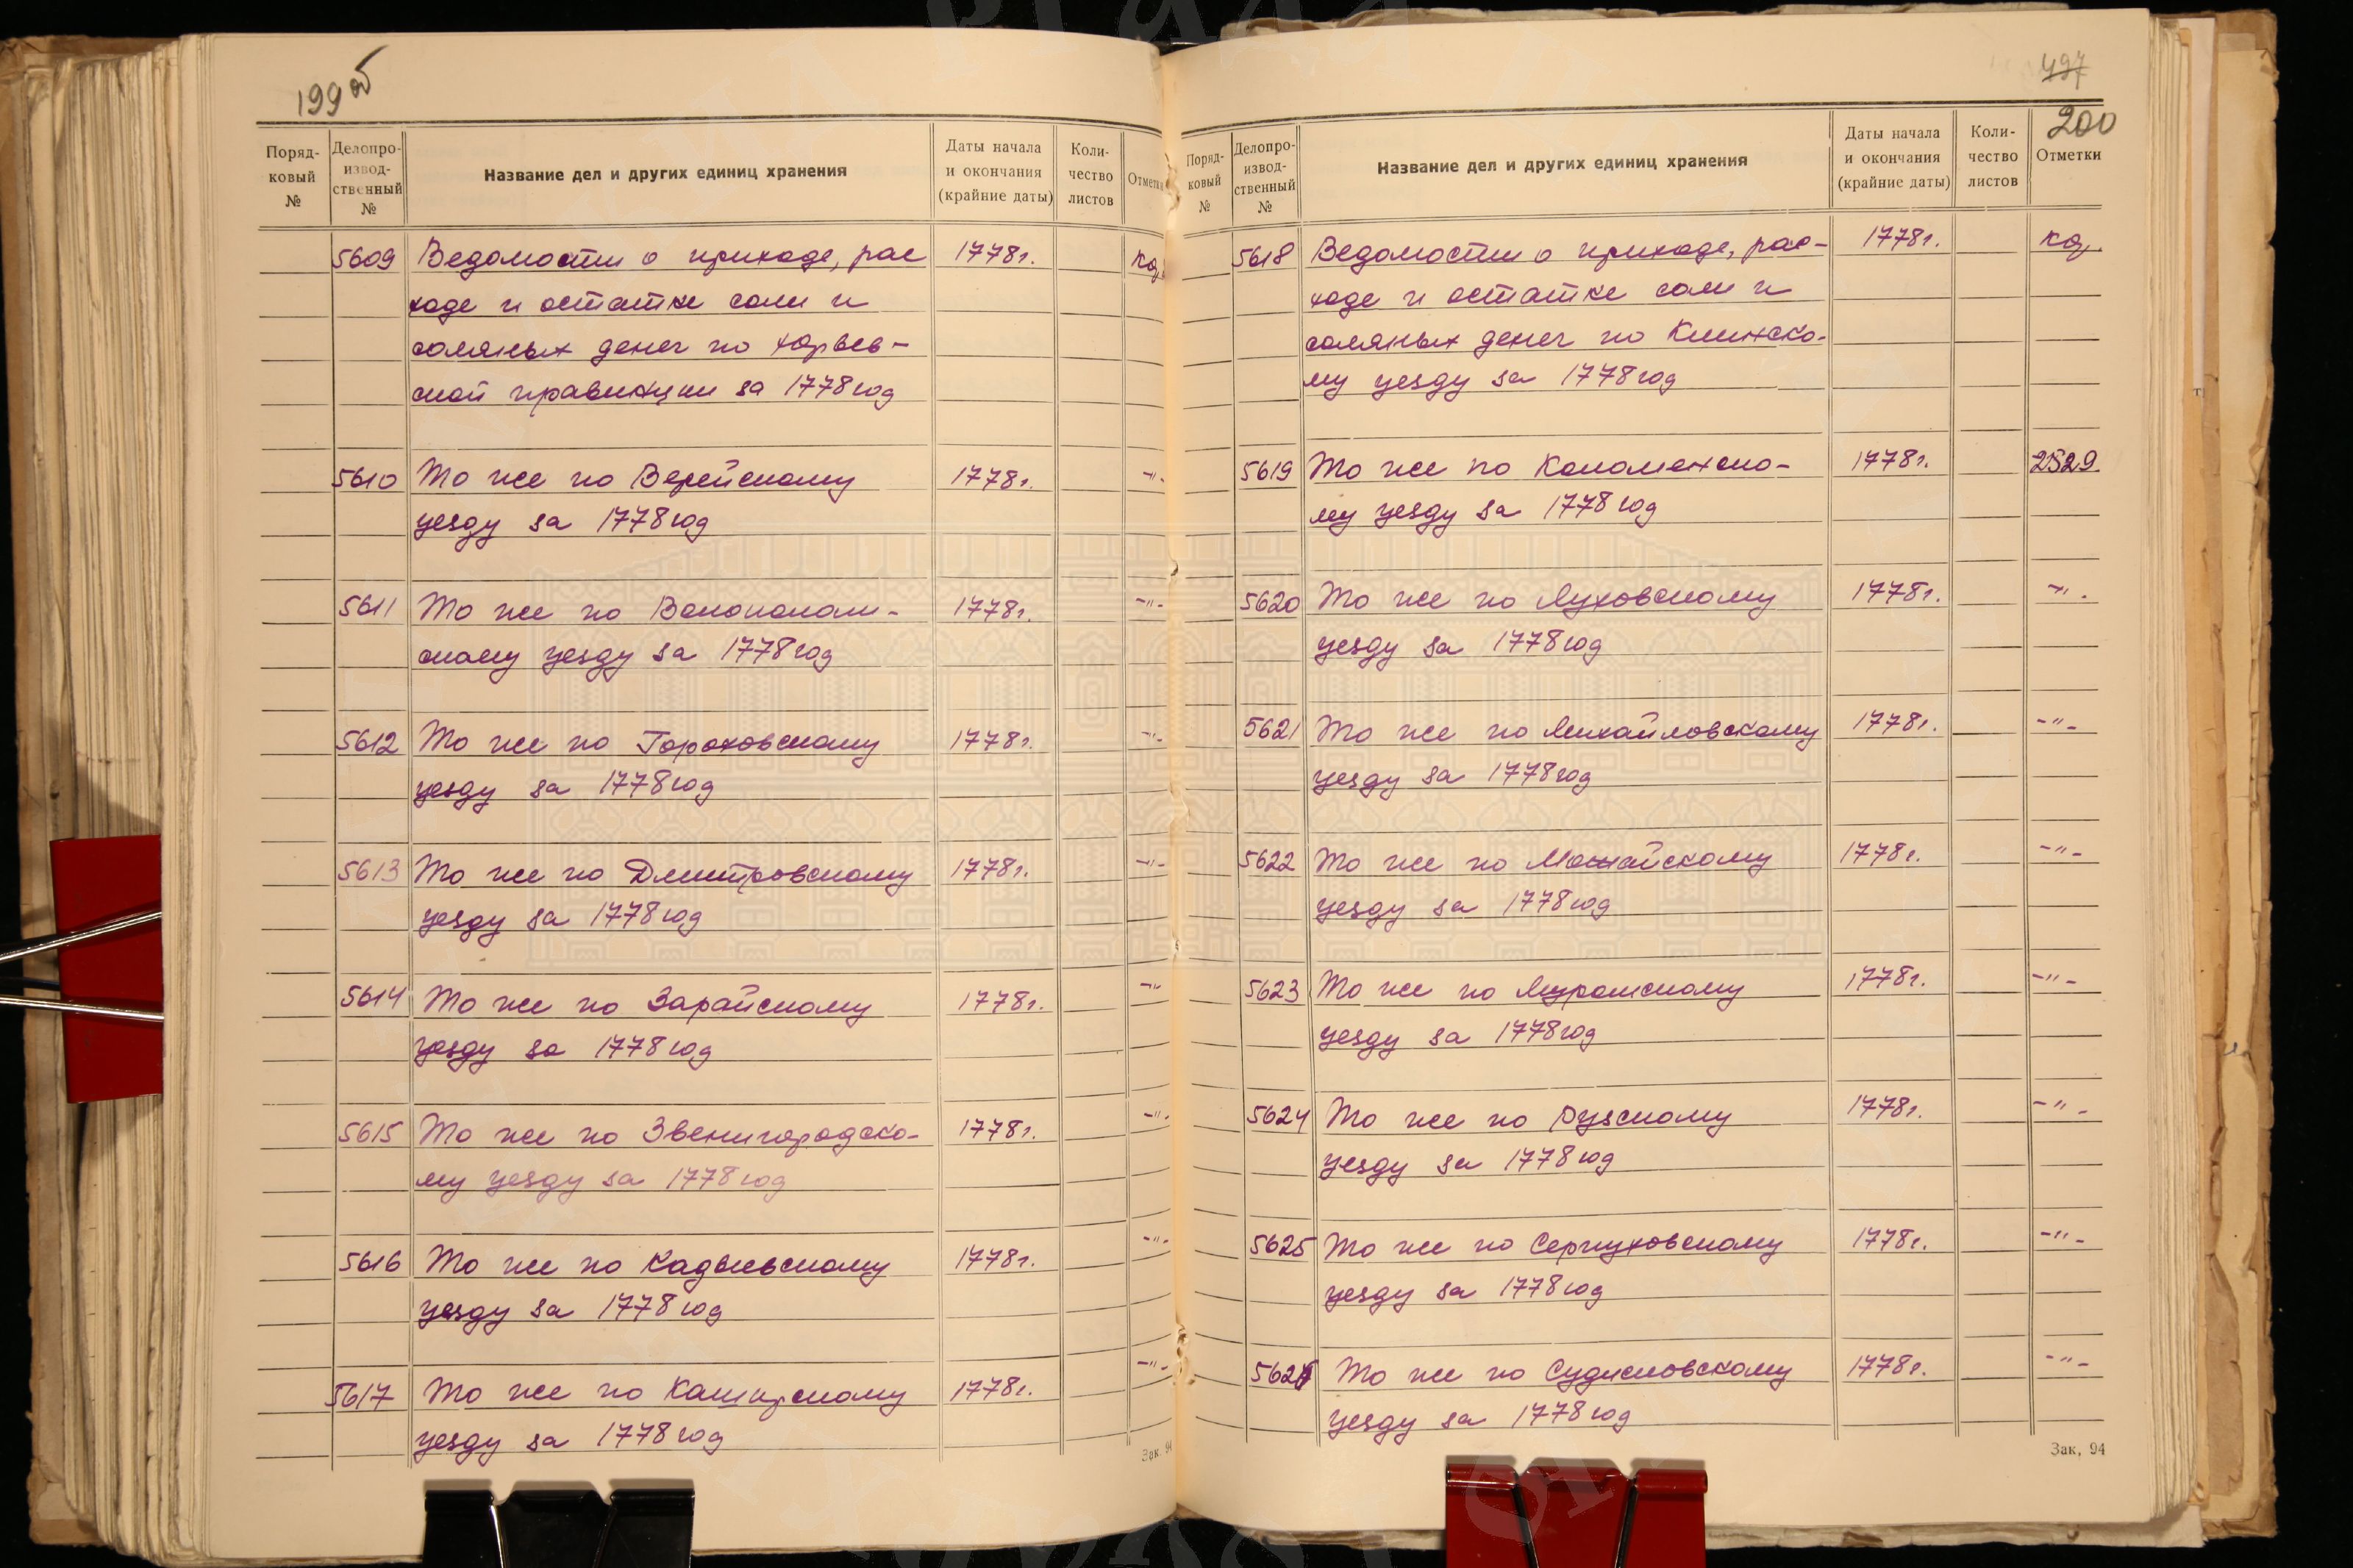 199 об
Поряд-
ковый
№
Делопро-
извод-
ственный
№
Название дел и других единиц хранения
Даты начала
и окончания
(крайние даты)
Коли-
чество
листов
Отметки
5609 Ведомости о приходе, рас 1778г.
ходе и остатке соли и
соляных денег по Юрьев-
ской правинции за 1778 год
5610 То же по Верейскому 1778г. -"-
уезду за 1778 год
5611 То же по Волоколам- 1778г. -"-
скому уезду за 1778 год
5612 То же по Гороховскому 1778г. -"-
уезду за 1778 год
5613 То же по Дмитровскому 1778г. -"-
уезду за 1778 год
5614 То же по Зарайскому 1778г. -"-
уезду за 1778 год
5615 То же по Звенигородско- 1778г. -"-
му уезду за 1778 год
5616 То же по Кадыевскому 1778г. -"-
уезду за 1778 год
5617 То же по Каширскому 1778г. -"-
уезду за 1778 год
Зак. 94
497
200
Поряд-
ковый
№
Делопро-
извод-
ственный
№
Название дел и других единиц хранения
Даты начала
и окончания
(крайние даты)
Коли-
чество
листов
Отметки
5618 Ведомости о приходе, рас- 1778г.
ходе и остатке соли и
соляных денег по Клинско-
му уезду за 1778 год
5619 То же по Коломенско- 1778г. 2529
му уезду за 1778 год
5620 То же по Луховскому 1778г. -"-
уезду за 1778 год
5621 То же по Михайловскому 1778г. -"-
уезду за 1778 год
5622 То же по Можайскому 1778г. -"-
уезду за 1778 год
5623 То же по Муромскому 1778г. -"-
уезду за 1778 год
5624 То же по Рузскому 1778г. -"-
уезду за 1778 год
5625 То же по Серпуховскому 1778г. -"-
уезду за 1778 год
5626 То же по Судисловскому 1778г. -"-
уезду за 1778 год
Зак, 94